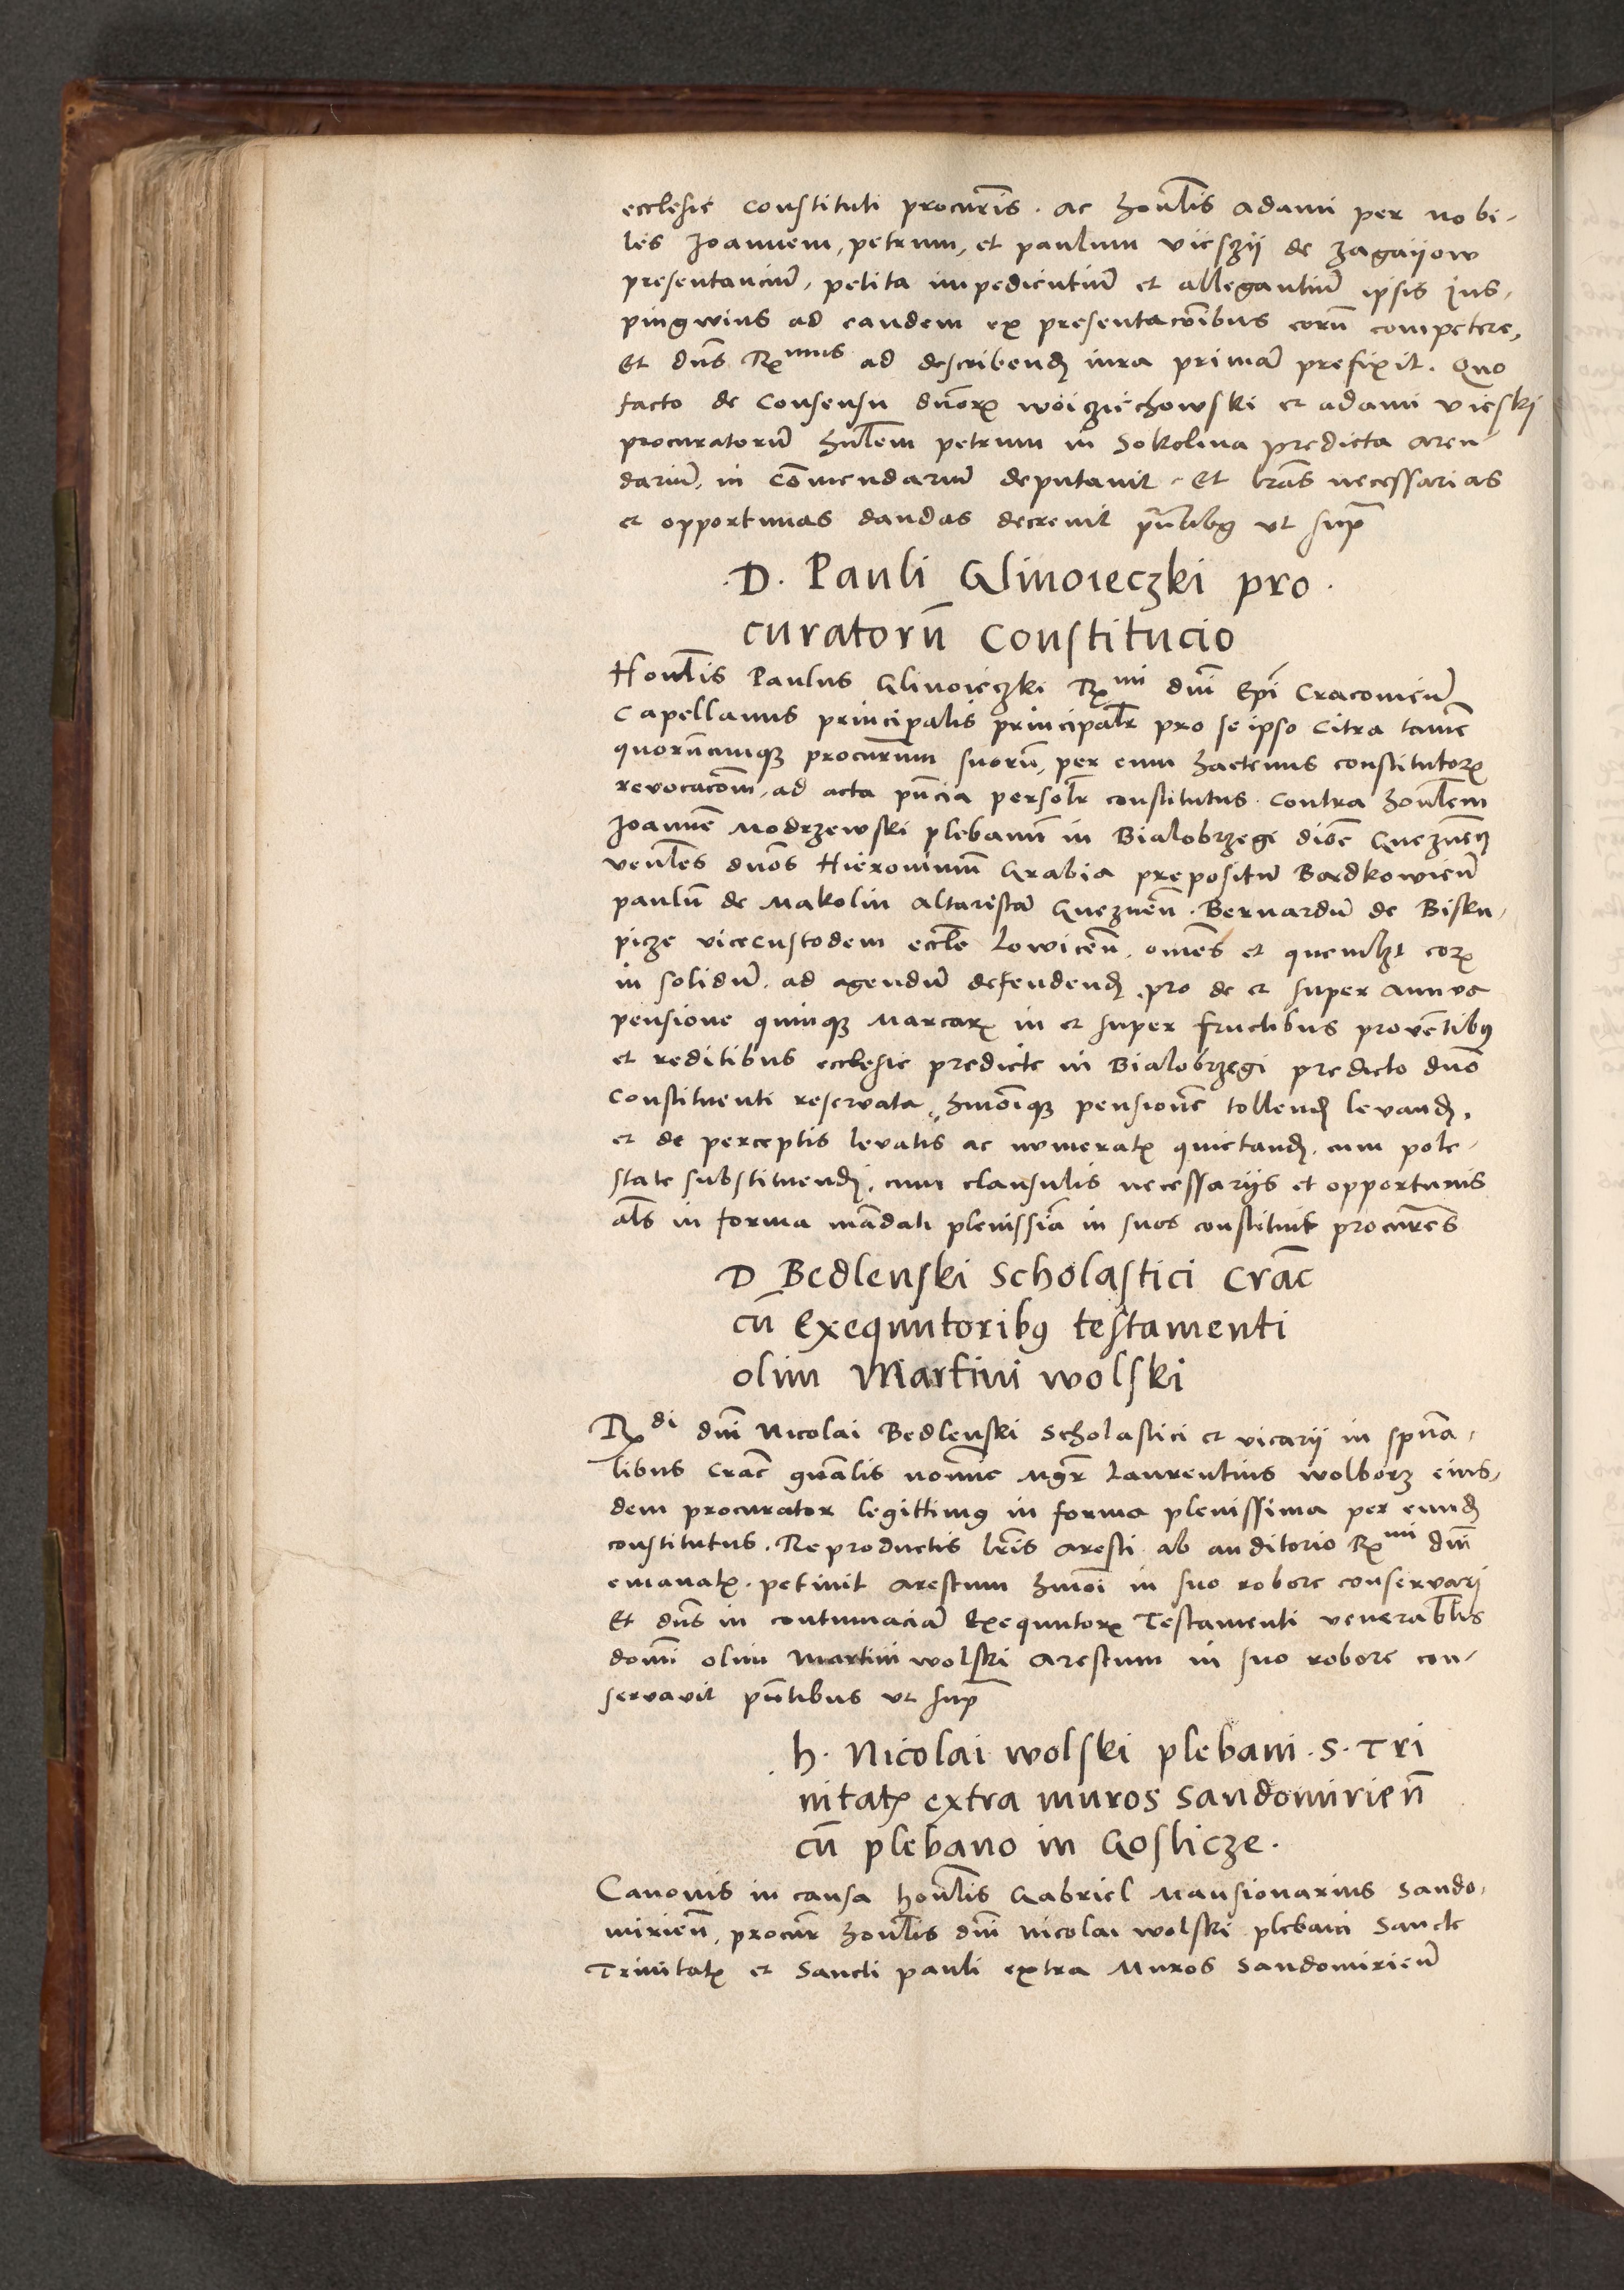 ecclesie constituti procur̄is. ac hon̄lis adami per nobi-
les Joannem, petrum, et paulum vieszii de zagaijow
presentanciū, petita impedientiū et allegantiū ipsis Jus,
pingwius ad eandem ex presentac̄oibus eorū competere,
Et dn̄s Rxmus ad describend̄ iura primā prefixit. Quo
facto de consensu dn̄orꝝ woiczıechowski et adami vieski
procuratorū hn̄lem petrum in Sokolina predicta aren-
dariū, in Com̄endariū deputavit. Et lr̄as necessarias
et opportunas dandas decrevit pn̄tibꝰ vt supꝰ
.D. Pauli Glinoieczki pro.
curatorū Constitucio
Hon̄lis Paulus Glinoieczki Rxmi dn̄i Ep̄i Cracovien̄
Capellanus principalis principalr̄ pro se ipso Citra tamē
quorūcumqꝫ procur̄um suorū, per eum hactenus constitutorꝝ
revocac̄om, ad acta pn̄cia personlr̄ constitutus. contra hon̄lem
Joannē Modrzewski plebanū in Bialobrzegi dioc̄ Gnezneñ
ven̄les dn̄os Hieronimū Grabia prepositū Bandkowien̄
paulū de Makolin Altaristā Gneznen̄. Bernardū de Bisku,
picze vicecustodem eccl̄e Lowicen̄. om̄es et quemlꝫt eorꝝ
in solidū. ad agendū defendend̄. pro de et super annua
pensione quinqꝫ Marcarꝝ in et super fructibus prove̅tibꝰ
et reditibus ecclesie predicte in Bialobrzegi predicto dn̄o
Constituenti reservata, hm̄oiqꝫ pensionē tollend̄ levand̄,
et de perceptis levatis ac numeratꝝ quietand̄. cum pote-
state substituendi, cum clausulis necessariis et opportunis
al̄s in forma mādati plenissīa in suos constituit procur̄es
D Bedlenski Scholastici Crac̄
cū Exequutoribꝰ testamenti
olim Martini wolski
Rxdi dn̄i Nicolai Bedlenski Scholastici et vicarii in spn̄a,
libus Crac̄ gn̄alis noīne Mgr̄ Laurentius wolborz eius,
dem procurator legittimꝰ in forma plenissima per eund̄
constitutus. Reproductis lr̄is aresti ab auditorio Rxmi dn̄i
emanatꝝ. petivit arestum hm̄oi in suo robore conservari
Et dn̄s in contumaciā Exequutorꝝ Testamenti venerabl̄is
domī olim Martini wolski Arestum in suo robore con-
servavit pn̄tibus vt supꝰ
h. Nicolai wolski plebani. S. Tri
nitatꝝ extra muros Sandomirien̄
cū plebano in Goslicze.
Canonis in causa hon̄lis Gabriel Mansionarius Sando,
mirien̄, procur̄ hon̄lis dn̄i Nicolai wolski plebani Sancte
Trinitatꝝ et Sancti pauli extra Muros Sandomirien̄